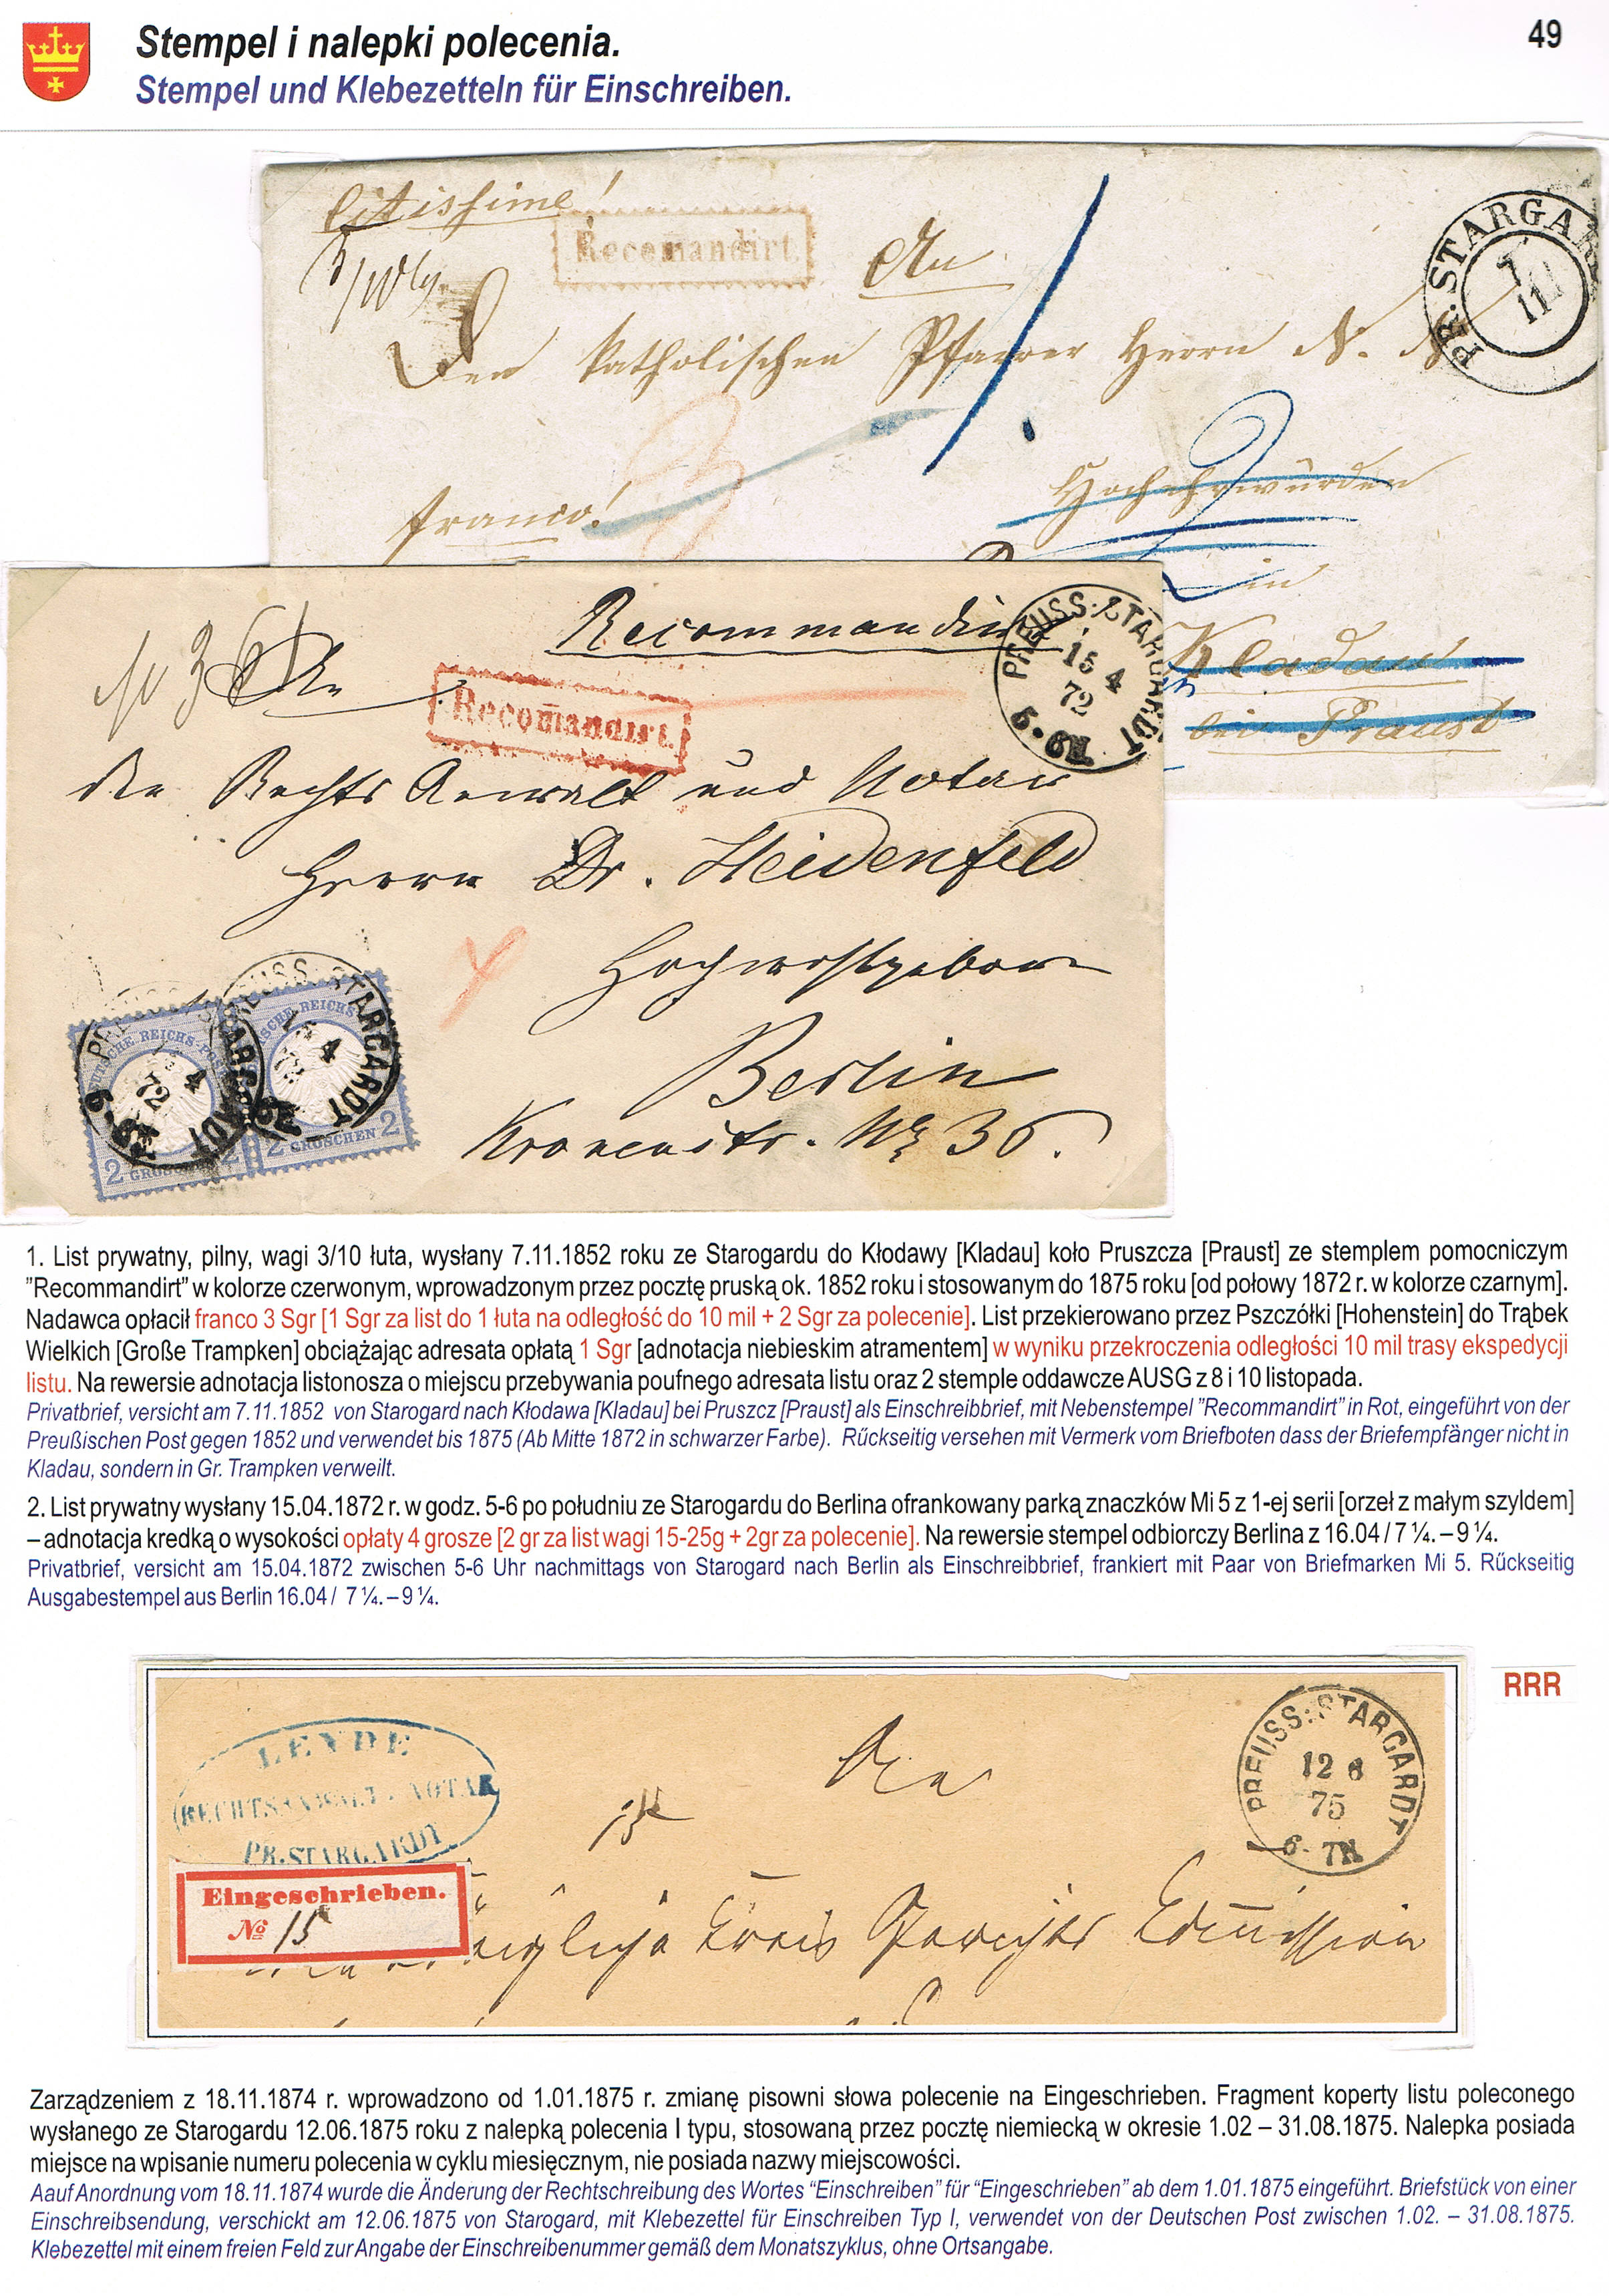 Stempel i nalepki polecenia.
49
Stempel und Klebezetteln für Einschreiben.
citissime!
Recomandirt.
An
PR. STARGAR
7
11
Den katholischen Pfarrer Herrn N. N.
Hochehrwürden
franco!
in
Kladau
bei Praust
Recommandirt
No 36
An
Recomandirt.
PREUSS: STARGARDT
15 4
72
5-6N.
den Rechts Anwalt und Notar
Herrn Dr. Heidenfeld
Hochwohlgeboren
Berlin
Kronenstr. No 36.
PREUSS: STARGARDT
4
72
DEUTSCHE REICHS-POST
2 GROSCHEN 2
2 GROSCHEN 2
1. List prywatny, pilny, wagi 3/10 łuta, wysłany 7.11.1852 roku ze Starogardu do Kłodawy [Kladau] koło Pruszcza [Praust] ze stemplem pomocniczym
"Recommandirt" w kolorze czerwonym, wprowadzonym przez pocztę pruską ok. 1852 roku i stosowanym do 1875 roku [od połowy 1872 r. w kolorze czarnym].
Nadawca opłacił franco 3 Sgr [1 Sgr za list do 1 łuta na odległość do 10 mil + 2 Sgr za polecenie]. List przekierowano przez Pszczółki [Hohenstein] do Trąbek
Wielkich [Große Trampken] obciążając adresata opłatą 1 Sgr [adnotacja niebieskim atramentem] w wyniku przekroczenia odległości 10 mil trasy ekspedycji
listu. Na rewersie adnotacja listonosza o miejscu przebywania poufnego adresata listu oraz 2 stemple oddawcze AUSG z 8 i 10 listopada.
Privatbrief, versicht am 7.11.1852 von Starogard nach Kłodawa [Kladau] bei Pruszcz [Praust] als Einschreibbrief, mit Nebenstempel "Recommandirt" in Rot, eingeführt von der
Preußischen Post gegen 1852 und verwendet bis 1875 (Ab Mitte 1872 in schwarzer Farbe). Rückseitig versehen mit Vermerk vom Briefboten dass der Briefempfänger nicht in
Kladau, sondern in Gr. Trampken verweilt.
2. List prywatny wysłany 15.04.1872 r. w godz. 5-6 po południu ze Starogardu do Berlina ofrankowany parką znaczków Mi 5 z 1-ej serii [orzeł z małym szyldem]
– adnotacja kredką o wysokości opłaty 4 grosze [2 gr za list wagi 15-25g + 2gr za polecenie]. Na rewersie stempel odbiorczy Berlina z 16.04 / 7 ¼. – 9 ¼.
Privatbrief, versicht am 15.04.1872 zwischen 5-6 Uhr nachmittags von Starogard nach Berlin als Einschreibbrief, frankiert mit Paar von Briefmarken Mi 5. Rückseitig
Ausgabestempel aus Berlin 16.04 / 7 ¼. – 9 ¼.
RRR
LEYDE
RECHTSANWALT & NOTAR
PR. STARGARDT
An
PREUSS: STARGARDT
12 6
75
6-7N
Eingeschrieben.
No 15
Königliche Kreis Gerichts Commission
Zarządzeniem z 18.11.1874 r. wprowadzono od 1.01.1875 r. zmianę pisowni słowa polecenie na Eingeschrieben. Fragment koperty listu poleconego
wysłanego ze Starogardu 12.06.1875 roku z nalepką polecenia I typu, stosowaną przez pocztę niemiecką w okresie 1.02 – 31.08.1875. Nalepka posiada
miejsce na wpisanie numeru polecenia w cyklu miesięcznym, nie posiada nazwy miejscowości.
Aauf Anordnung vom 18.11.1874 wurde die Änderung der Rechtschreibung des Wortes "Einschreiben" für "Eingeschrieben" ab dem 1.01.1875 eingeführt. Briefstück von einer
Einschreibsendung, verschickt am 12.06.1875 von Starogard, mit Klebezettel für Einschreiben Typ I, verwendet von der Deutschen Post zwischen 1.02. – 31.08.1875.
Klebezettel mit einem freien Feld zur Angabe der Einschreibenummer gemäß dem Monatszyklus, ohne Ortsangabe.